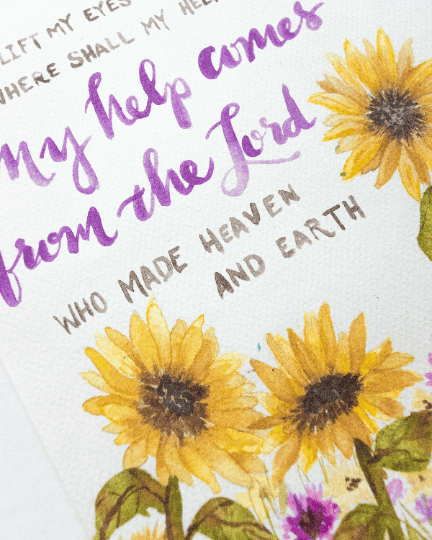 LIFT MY EYES
WHERE SHALL MY HELP
my help comes
from the Lord
WHO MADE HEAVEN
AND EARTH